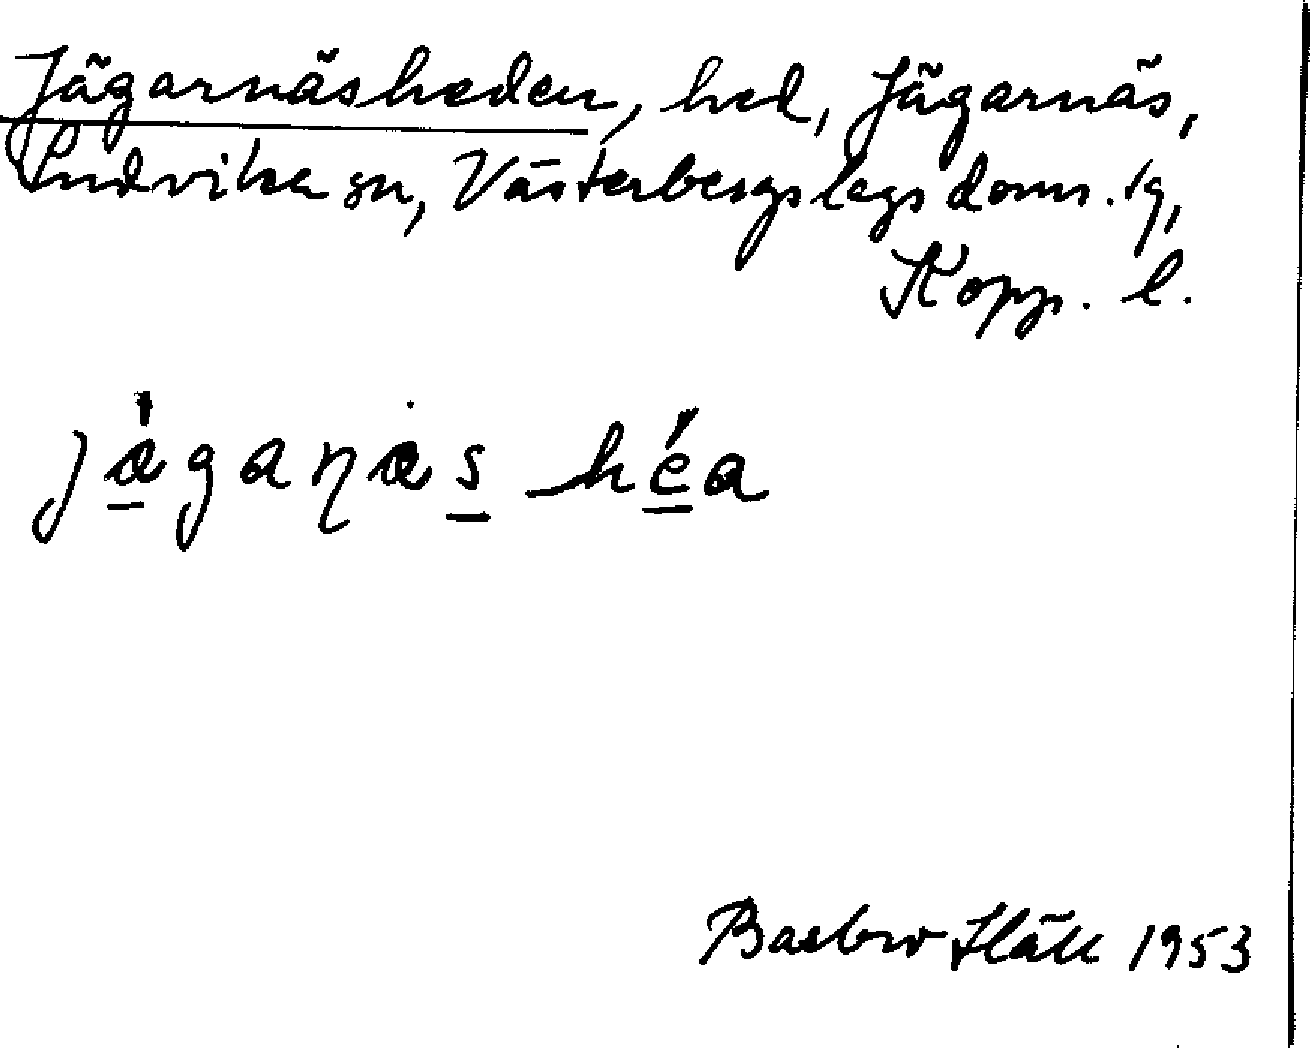 Jägarnäsheden, hed, Jägarnäs,
Ludvika sn, Västerbergslags doms.tg,
Kopp. l.
jäganäs héa
1953